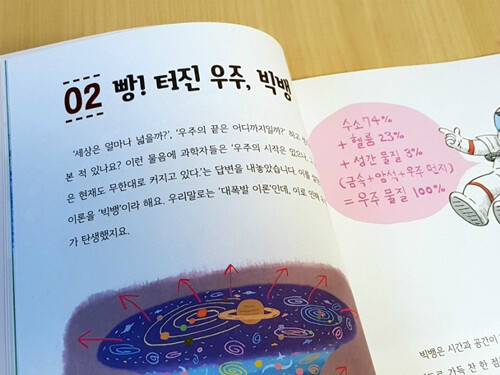 02 빵! 터진 우주, 빅뱅
'세상은 얼마나 넓을까?', '우주의 끝은 어디까지일까?' 하고
본 적 있나요? 이런 물음에 과학자들은 '우주의 시작은 있으나,
은 현재도 무한대로 커지고 있다.'는 답변을 내놓았습니다. 이를
이론을 '빅뱅'이라 해요. 우리말로는 '대폭발 이론'인데, 이로 인해
가 탄생했지요.
수소 74%
+ 헬륨 23%
+ 성간 물질 3%
(금속+암석+우주 먼지)
= 우주 물질 100%
빅뱅은 시간과 공간이
가득 찬 한 점